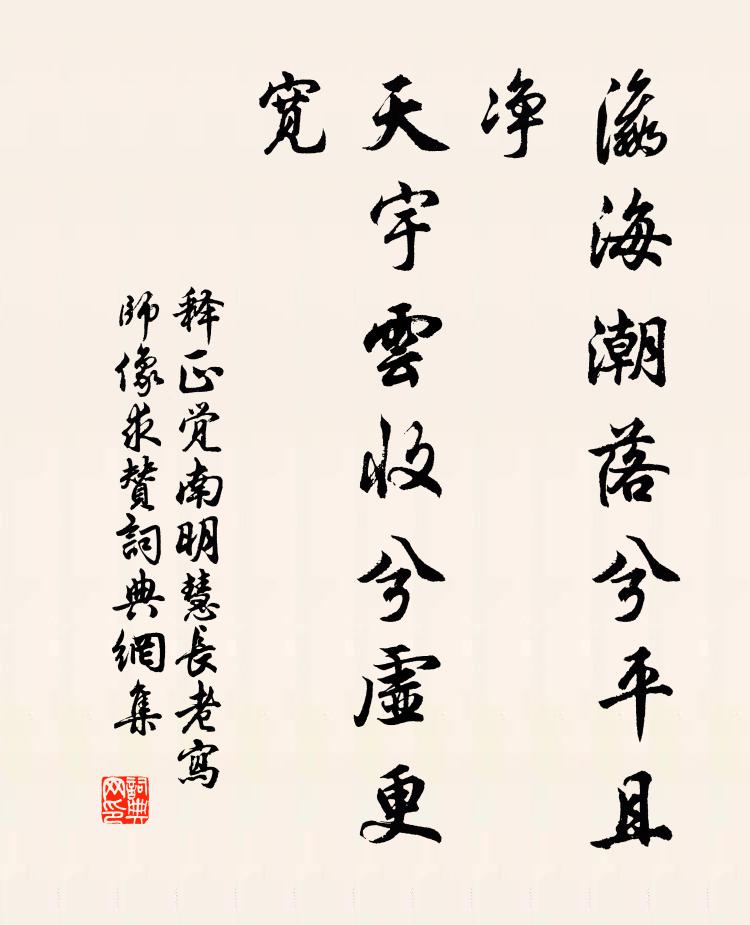 瀛海潮落兮平且
净
天宇雲收兮虛更
寬
释正觉南明慧長老寫
師像求贊詞典網集
詞典
网印